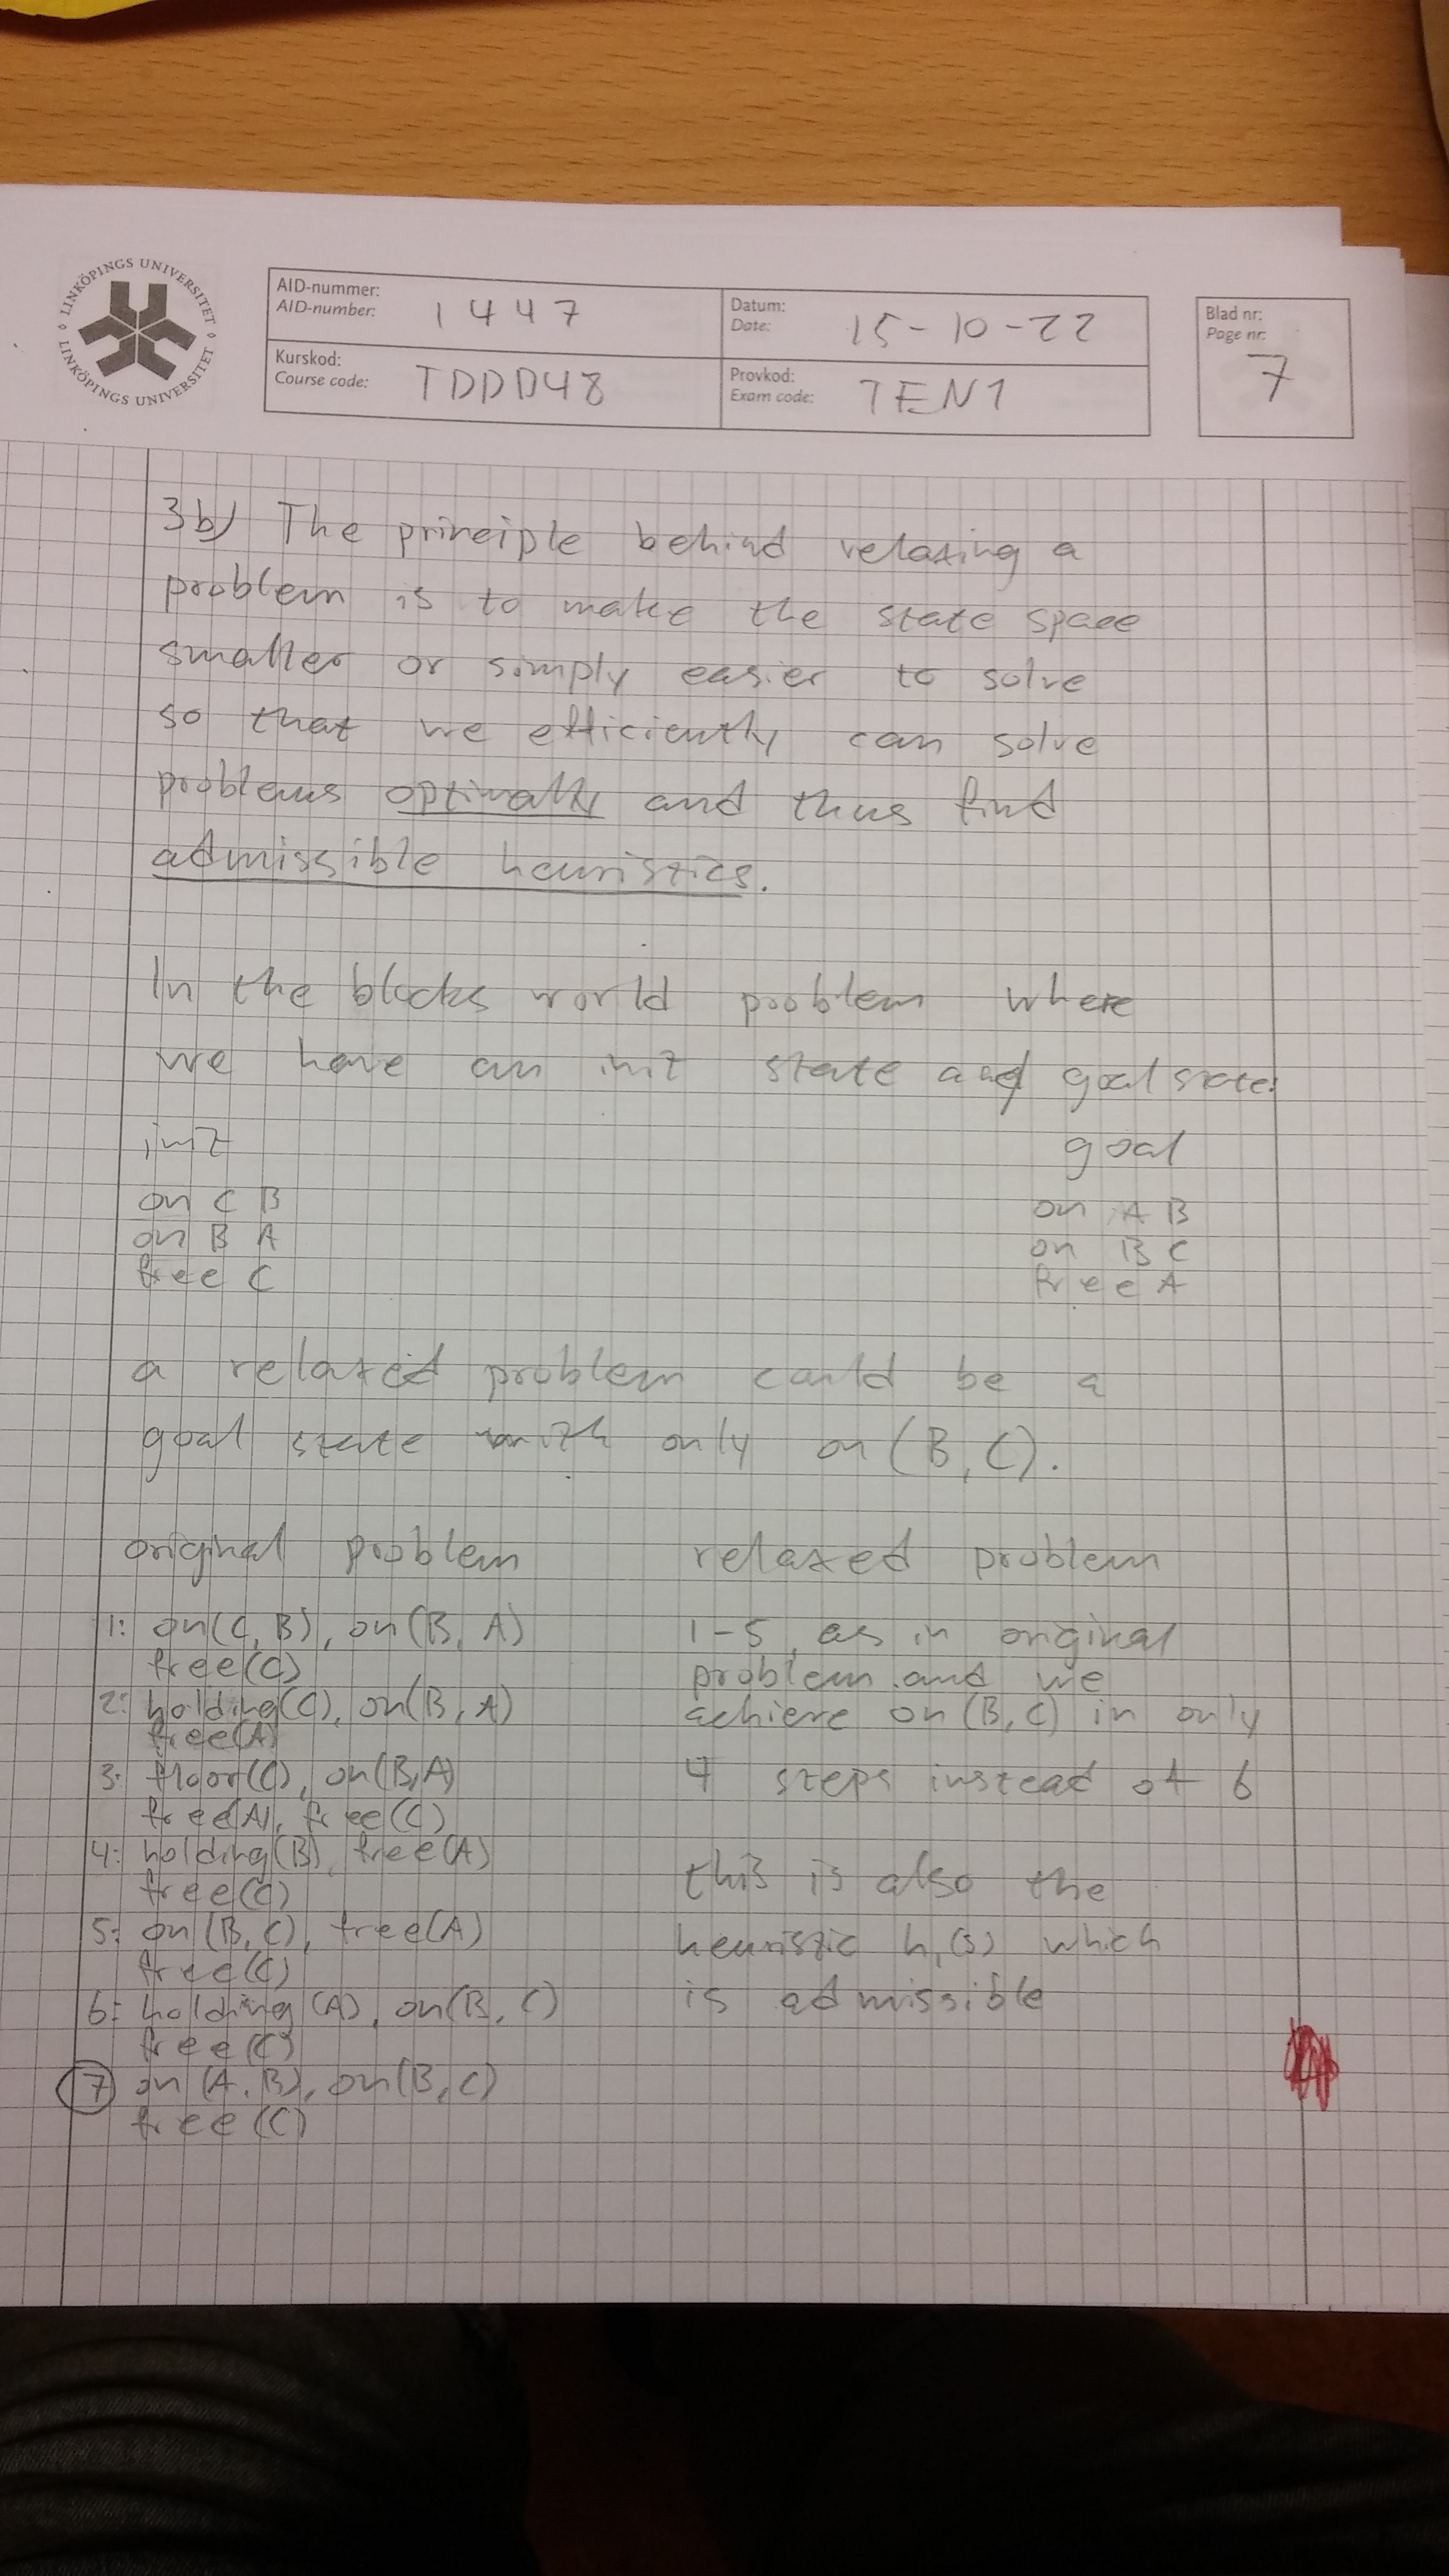 LINKÖPINGS UNIVERSITET
LINKÖPINGS UNIVERSITET
AID-nummer:
AID-number: 1447
Datum:
Date: 15-10-22
Blad nr:
Page nr:
7
Kurskod:
Course code: TDDD48
Provkod:
Exam code: TEN1
3b) The principle behind relaxing a
problem is to make the state space
smaller or simply easier to solve
so that we efficiently can solve
problems optimally and thus find
admissible heuristics.
In the blocks world problem where
we have an init state and goal state:
init
goal
on C B
on B A
free C
on A B
on B C
free A
a relaxed problem could be a
goal state with only on(B,C).
original problem
1: on(C,B), on(B,A)
free(C)
2: holding(C), on(B,A)
free(A)
3: floor(C), on(B,A)
free(A), free(C)
4: holding(B), free(A)
free(C)
5: on(B,C), free(A)
free(C)
6: holding(A), on(B,C)
free(C)
7 on(A,B), on(B,C)
free(C)
relaxed problem
1-5 as in original
problem and we
achieve on(B,C) in only
4 steps instead of 6
this is also the
heuristic h₁(s) which
is admissible